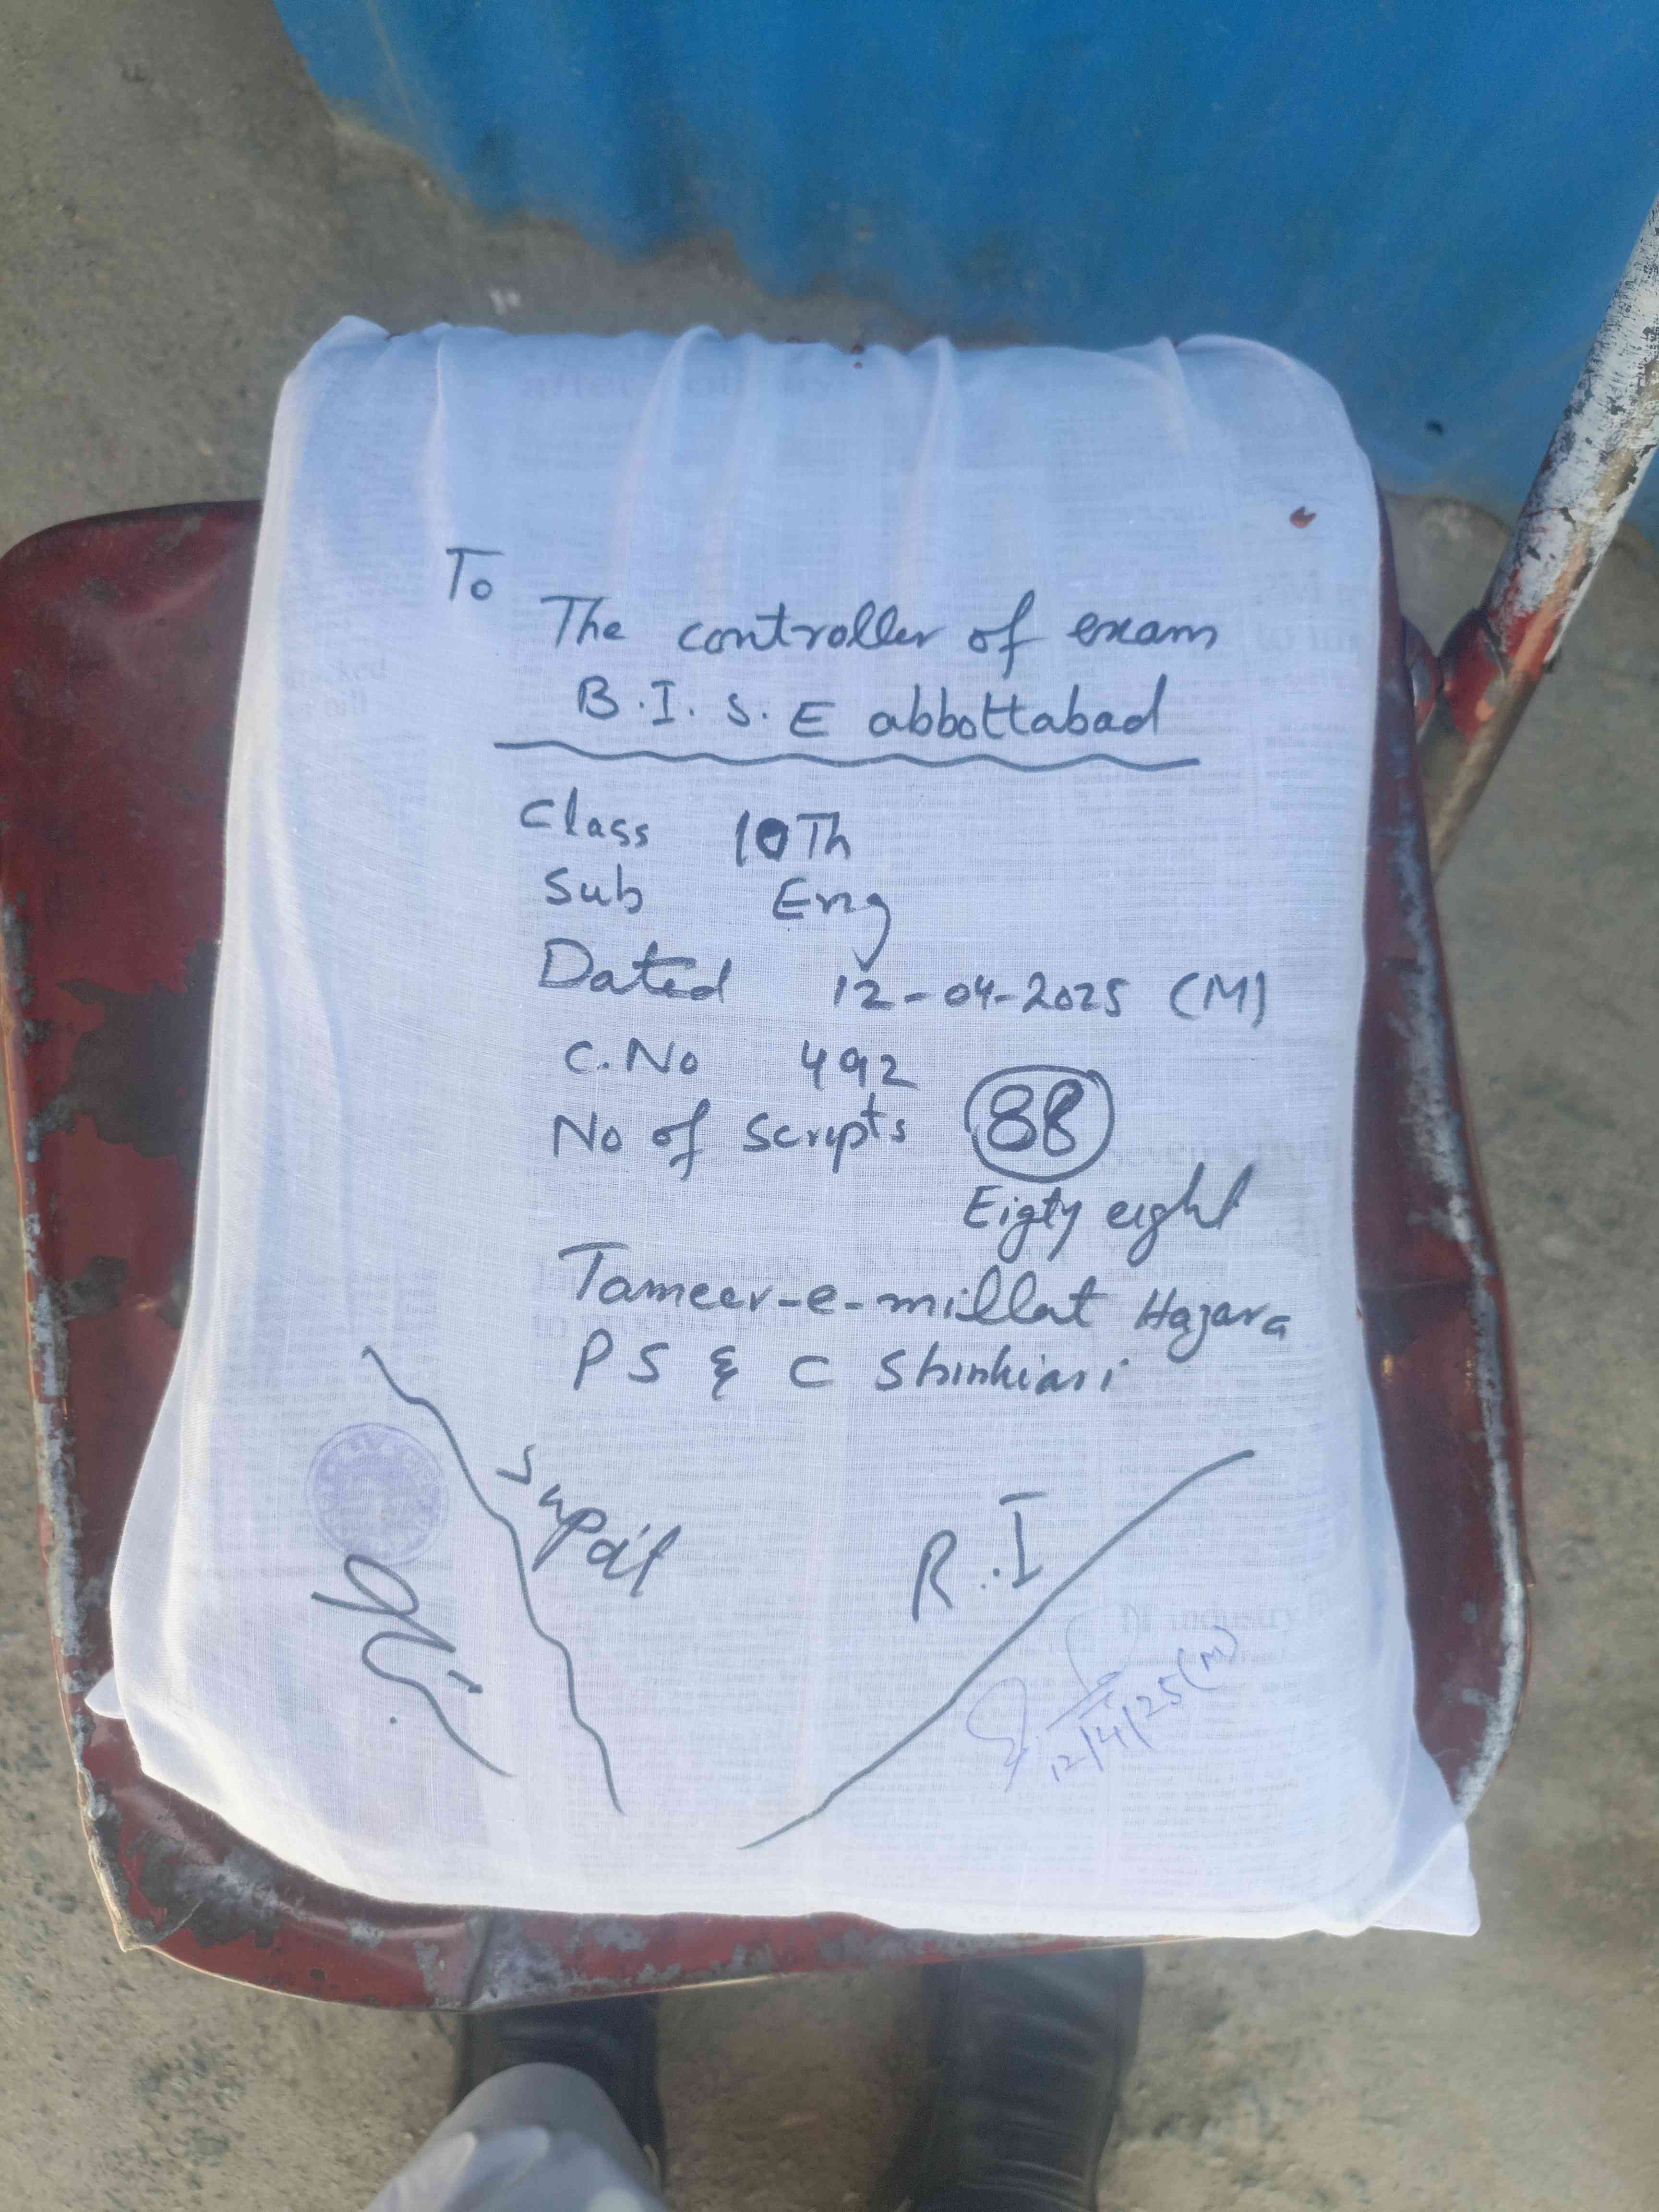 To
The controller of exam
B.I.S.E abbottabad
Class 10Th
Sub Eng
Dated 12-04-2025 (M)
C.No 492
No of Scripts 88
Eigty eight
Tameer-e-millat Hazara
PS & C Shinkiari
Supdt
R.I
12/4/25(M)